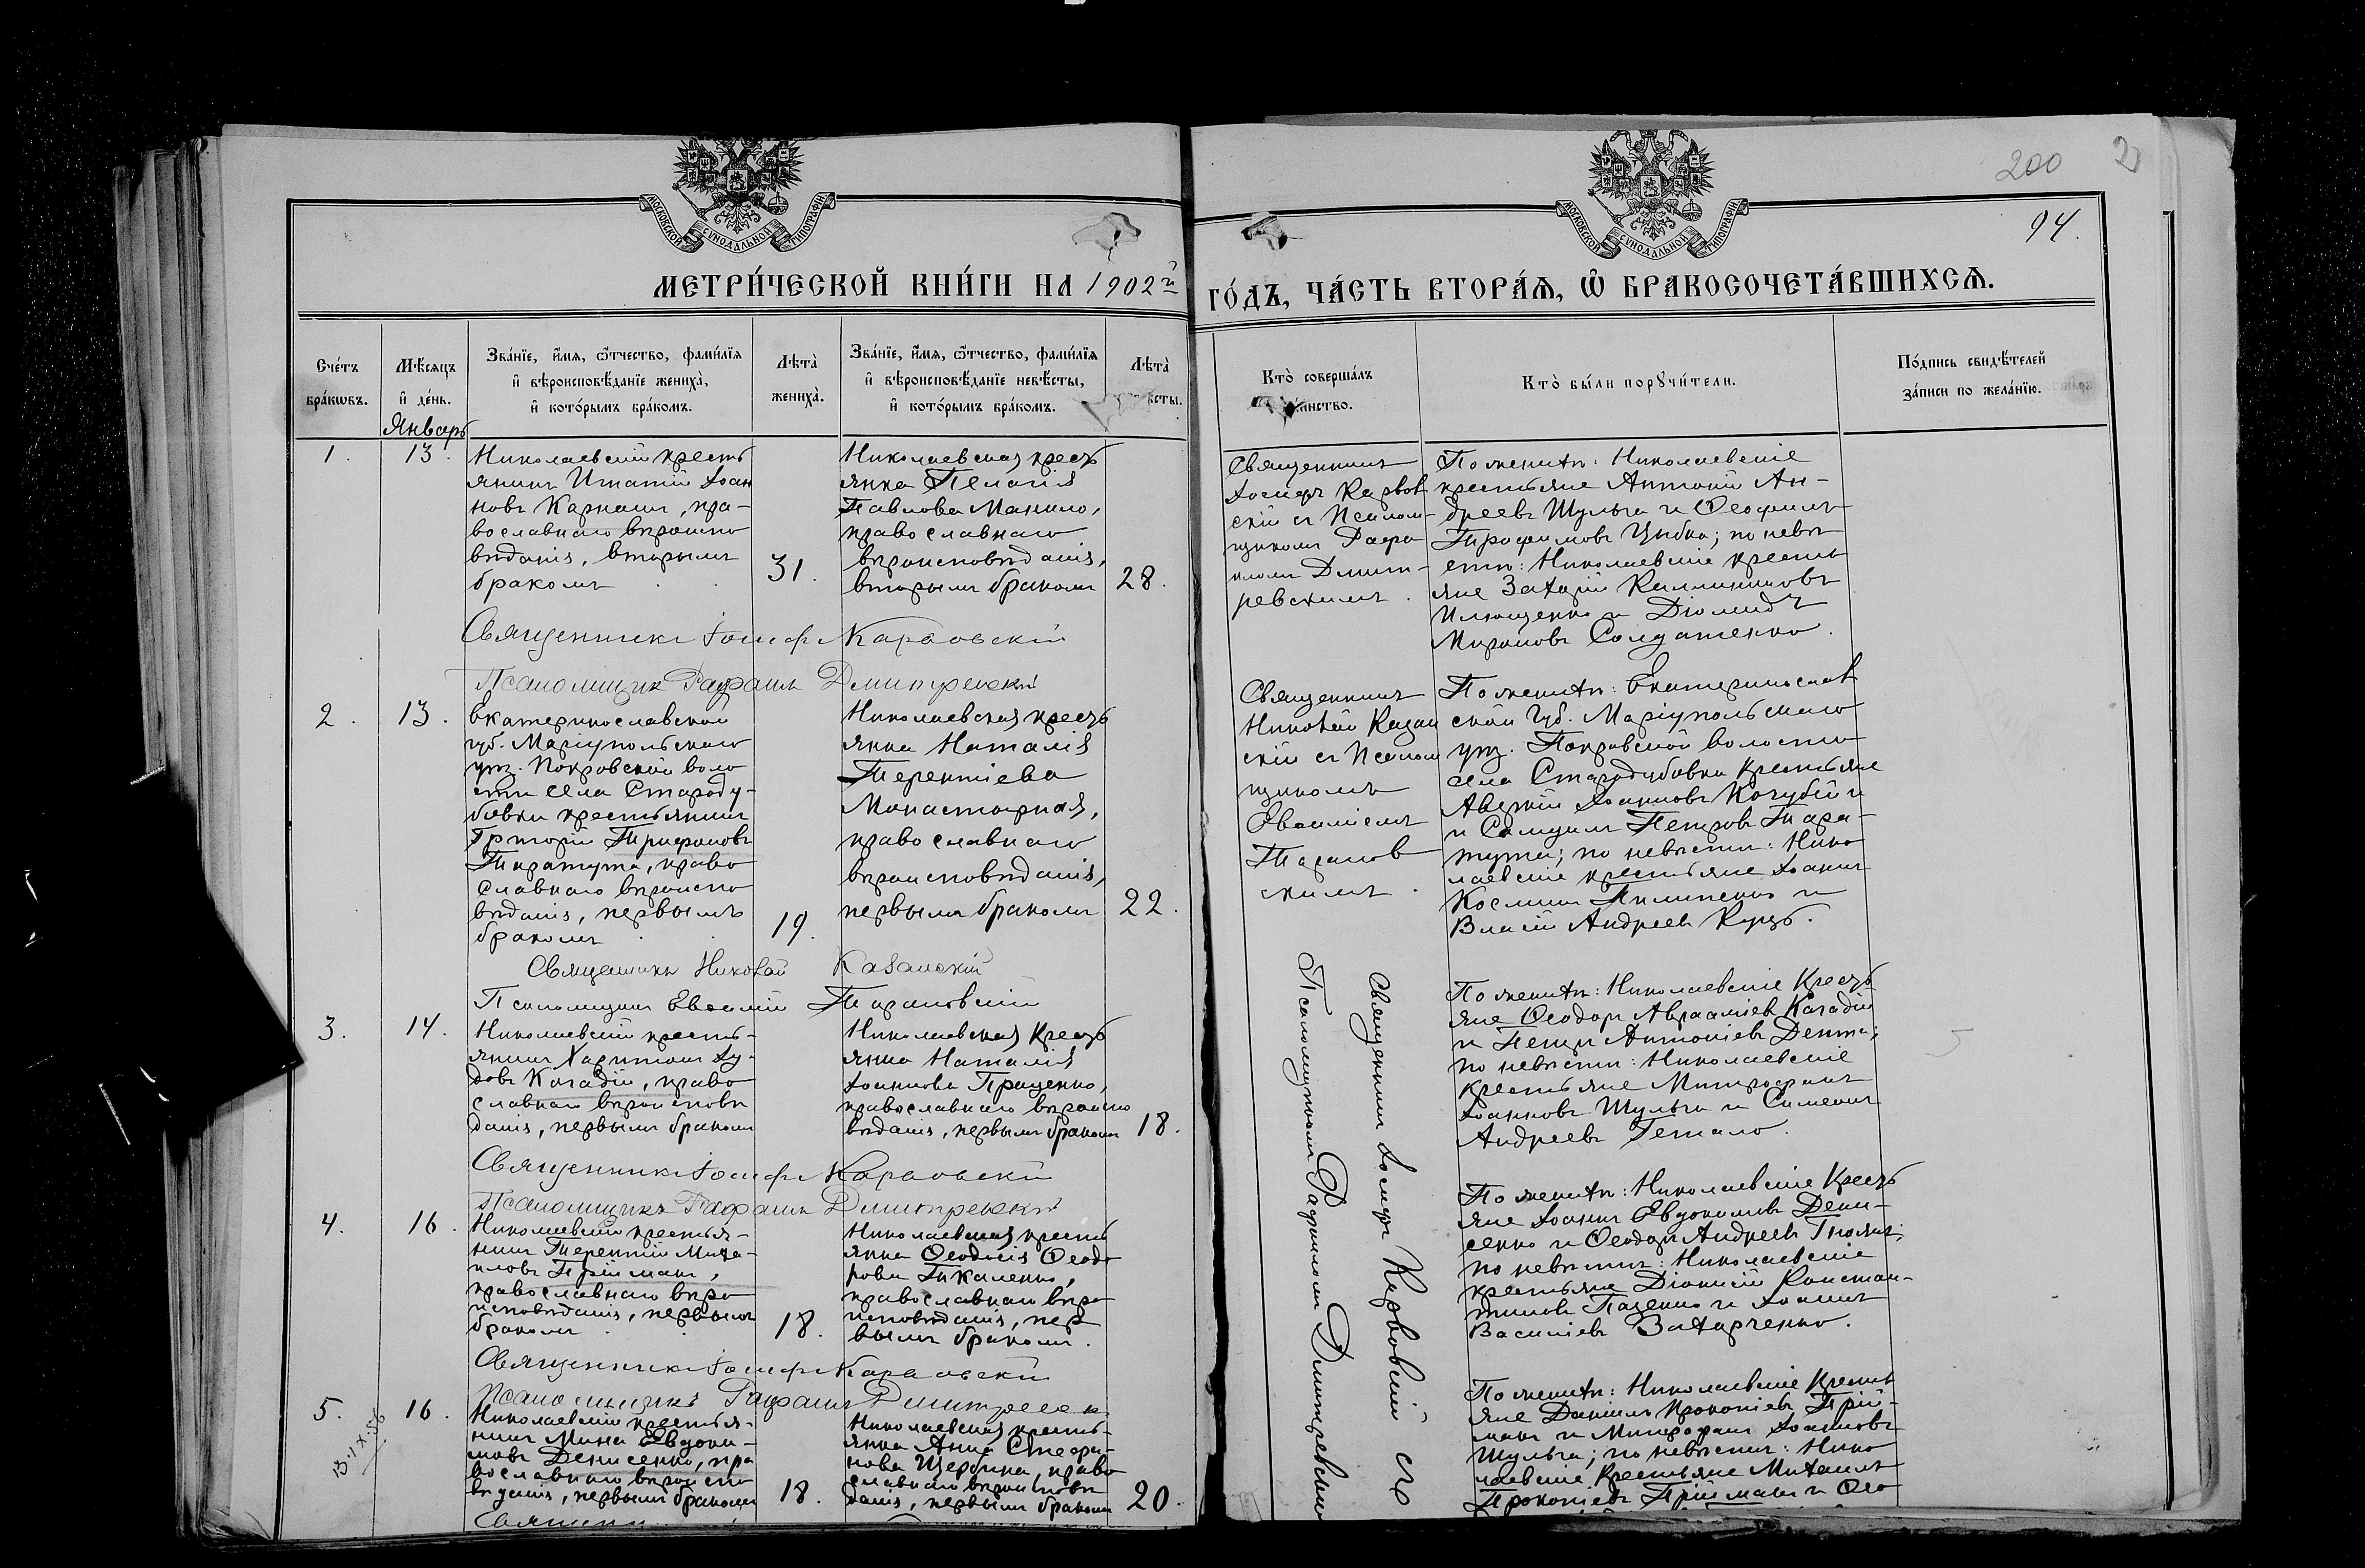 200 2
94.
МОСКОВСКОЙ СѴНОДАЛЬНОЙ ТИПОГРАФІИ
МОСКОВСКОЙ СѴНОДАЛЬНОЙ ТИПОГРАФІИ
МЕТРИ́ЧЕСКОЙ КНИ́ГИ НА 1902й
ГО́ДЪ, ЧА́СТЬ ВТОРА́Ѧ, Ѽ БРАКОСОЧЕТА́ВШИХСѦ.
Сче́тъ
бра́кѡвъ.
Мѣ́сяцъ
и҆ де́нь.
Январь
Зва́нїе, и҆́мя, ѻ҆́тчество, фами́лїя
и҆ вѣроисповѣ́данїе жениха̀,
и҆ кото́рымъ бра́комъ.
Лѣта̀
жениха̀.
Зва́нїе, и҆́мя, ѻ҆́тчество, фами́лїя
и҆ вѣроисповѣ́данїе невѣ́сты,
и҆ кото́рымъ бра́комъ.
Лѣта̀
Кто̀ соверша́лъ
Кто̀ бы́ли порꙋчи́тели.
По́дпись свидѣ́телей
за́писи по жела́нїю.
1. 13.
Николаевскій кресть
янинъ Игнатій Іоан
новъ Карнаухъ, пра-
вославнаго вѣроиспо
вѣданія, вторымъ
бракомъ
31.
Николаевская кресть
янка Пелагія
Павлова Манило,
православнаго
вѣроисповѣданія,
вторымъ бракомъ 28.
Священникъ
Іосифъ Карвов
скій съ Псалом-
щикомъ Рафа
иломъ Дмит-
ревскимъ.
По женихѣ: Николаевскіе
крестьяне Антоній Ан-
дреевъ Шульга и Ѳеофилъ
Трофимовъ Цыбка; по невѣ
стѣ: Николаевскіе кресть
яне Захарій Каллиниковъ
Илющенко и Діомидъ
Мироновъ Солдатенко.
Священникъ Іосифъ Карвовскій
Псаломщикъ Рафаилъ Дмитревскій
2. 13.
Екатеринославской
губ. Маріупольскаго
уѣз. Покровской воло
сти села Староду-
бовки крестьянинъ
Григорій Трифоновъ
Таратута, право
славнаго вѣроиспо
вѣданія, первымъ
бракомъ
19.
Николаевская кресть
янка Наталія
Терентіева
Монастырная,
православнаго
вѣроисповѣданія,
первымъ бракомъ 22.
Священникъ
Николай Казан
скій съ Псалом
щикомъ
Евѳиміемъ
Таранов
скимъ.
По женихѣ: Екатеринослав
ской губ. Маріупольскаго
уѣз. Покровской волости
села Стародубовки крестьяне
Іоанновъ Кочубей и
и Самуилъ Петровъ Тара-
тута; по невѣстѣ: Нико
лаевскіе крестьяне Іоаннъ
Косминъ Пилипенко и
Власій Андреевъ Куць.
Священникъ Николай Казанскій
Псаломщикъ Евѳимій Тарановскій
3. 14.
Николаевскій кресть-
янинъ Харитонъ Іу-
довъ Кагадій, право
славнаго вѣроисповѣ
данія, первымъ бракомъ
Николаевская кресть
янка Наталія
Іоаннова Проценко,
православнаго вѣроиспо
вѣданія, первымъ бракомъ 18.
Священникъ Іосифъ Карвовскій съ
Псаломщикомъ Рафаиломъ Дмитревскимъ
По женихѣ: Николаевскіе Кресть
яне Ѳеодоръ Авраамовъ Кагадій
и Петръ Антоніевъ Дейта;
по невѣстѣ: Николаевскіе
крестьяне Митрофанъ
Іоанновъ Шульга и Симеонъ
Андреевъ Гетало.
Священникъ Іосифъ Карвовскій
Псаломщикъ Рафаилъ Дмитревскій
4. 16.
Николаевскій крестья-
нинъ Терентій Миха-
иловъ Пріймакъ,
православнаго вѣро
исповѣданія, первымъ
бракомъ
18.
Николаевская кресть
янка Ѳеодосія Ѳеодо
рова Ткаленко,
православнаго вѣро
исповѣданія, пер
вымъ бракомъ.
По женихѣ: Николаевскіе Кресть
яне Іоаннъ Евдокимовъ Дени-
сенко и Ѳеодоръ Андреевъ
по невѣстѣ: Николаевскіе
крестьяне Діонисій Констан-
тиновъ Паценко и Іоаннъ
Василіевъ Захарченко.
Священникъ Іосифъ Карвовскій
Псаломщикъ Рафаилъ Дмитревскій
5. 16.
Николаевскій крестья-
нинъ Мина Евдоки-
мовъ Денисенко, пра
вославнаго вѣроиспо
вѣданія, первымъ бракомъ 18.
Николаевская кресть-
янка Анна Стефа-
нова Щербина, право
славнаго вѣроисповѣ
данія, первымъ бракомъ 20.
По женихѣ: Николаевскіе Кресть
яне Даніилъ Прокопіевъ Прій-
макъ и Митрофанъ Іоанновъ
Шульга; по невѣстѣ: Нико
лаевскіе Крестьяне Михаилъ
Прокопіевъ Пріймакъ и Ѳео